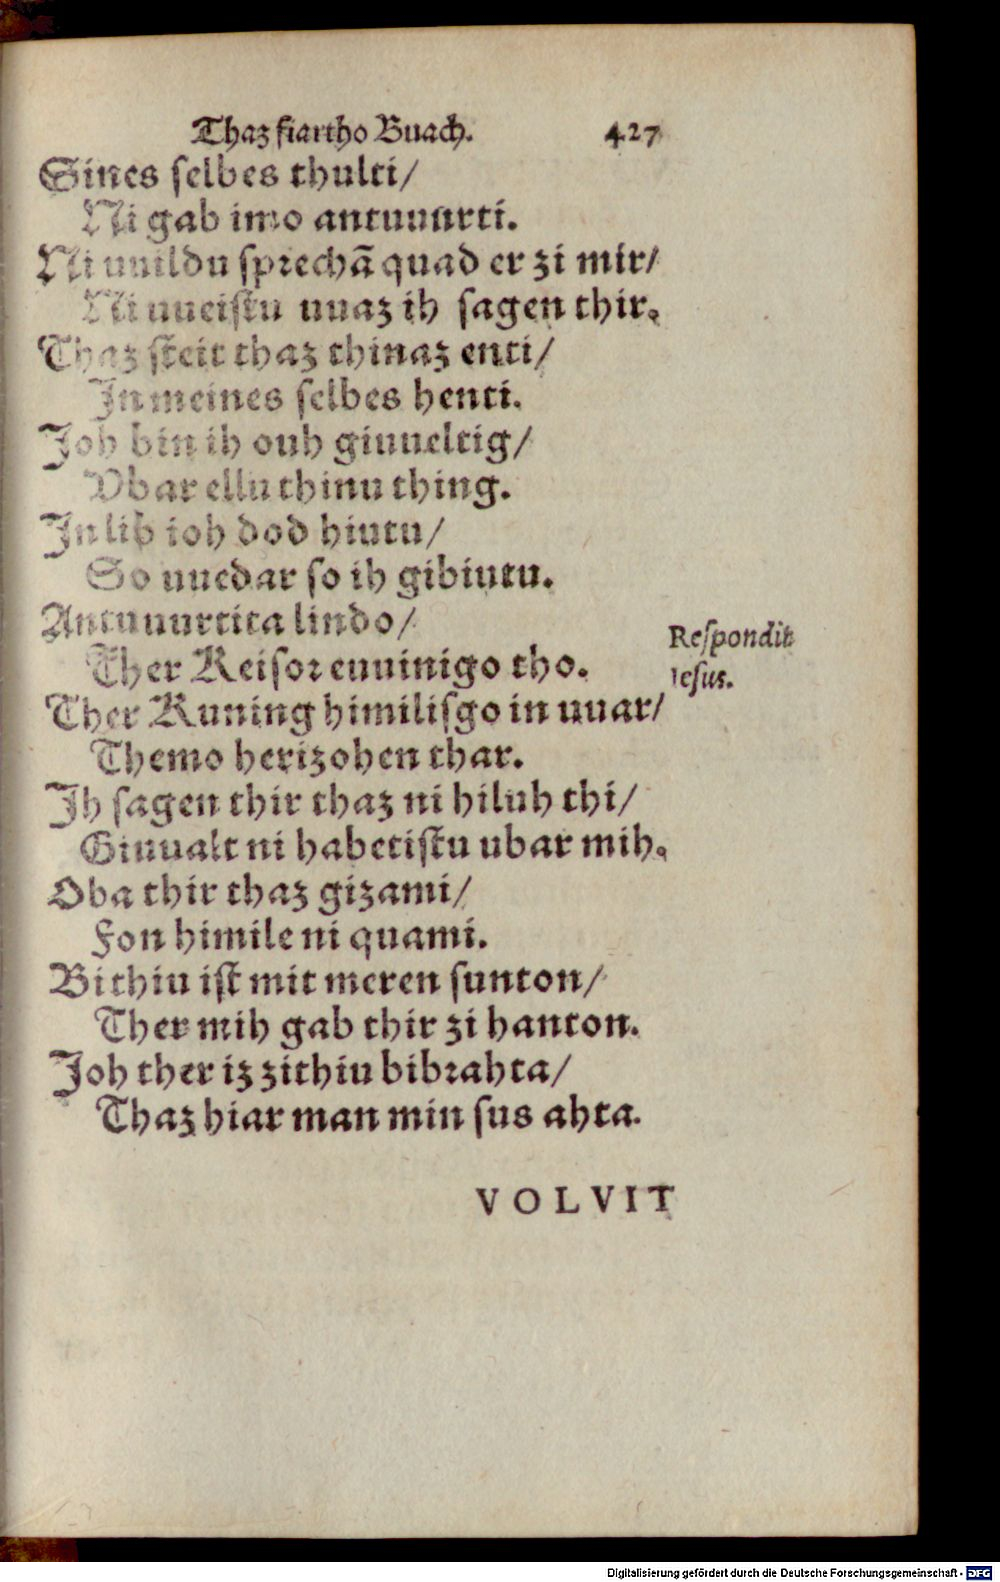 Thaz fiartho Buach. 427
Sines selbes thulti/
Ni gab imo antuuurti.
Ni uuildu sprechã quad er zi mir/
Ni uueistu uuaz ih sagen thir.
Thaz steit thaz thinaz enti/
In meines selbes henti.
Joh bin ih ouh giuueltig/
Vbar ellu thinu thing.
In lib ioh dod hiutu/
So uuedar so ih gibiutu.
Antuuurtita lindo/
Respondit
Ther Keisor euuinigo tho.
Iesus.
Ther Kuning himilisgo in uuar/
Themo herizohen thar.
Ih sagen thir thaz ni hiluh thi/
Giuualt ni habetistu ubar mih.
Oba thir thaz gizami/
Fon himile ni quami.
Bithiu ist mit meren sunton/
Ther mih gab thir zi hanton.
Joh ther iz zithiu bibrahta/
Thaz hiar man min sus ahta.
VOLVIT
Digitalisierung gefördert durch die Deutsche Forschungsgemeinschaft - DFG